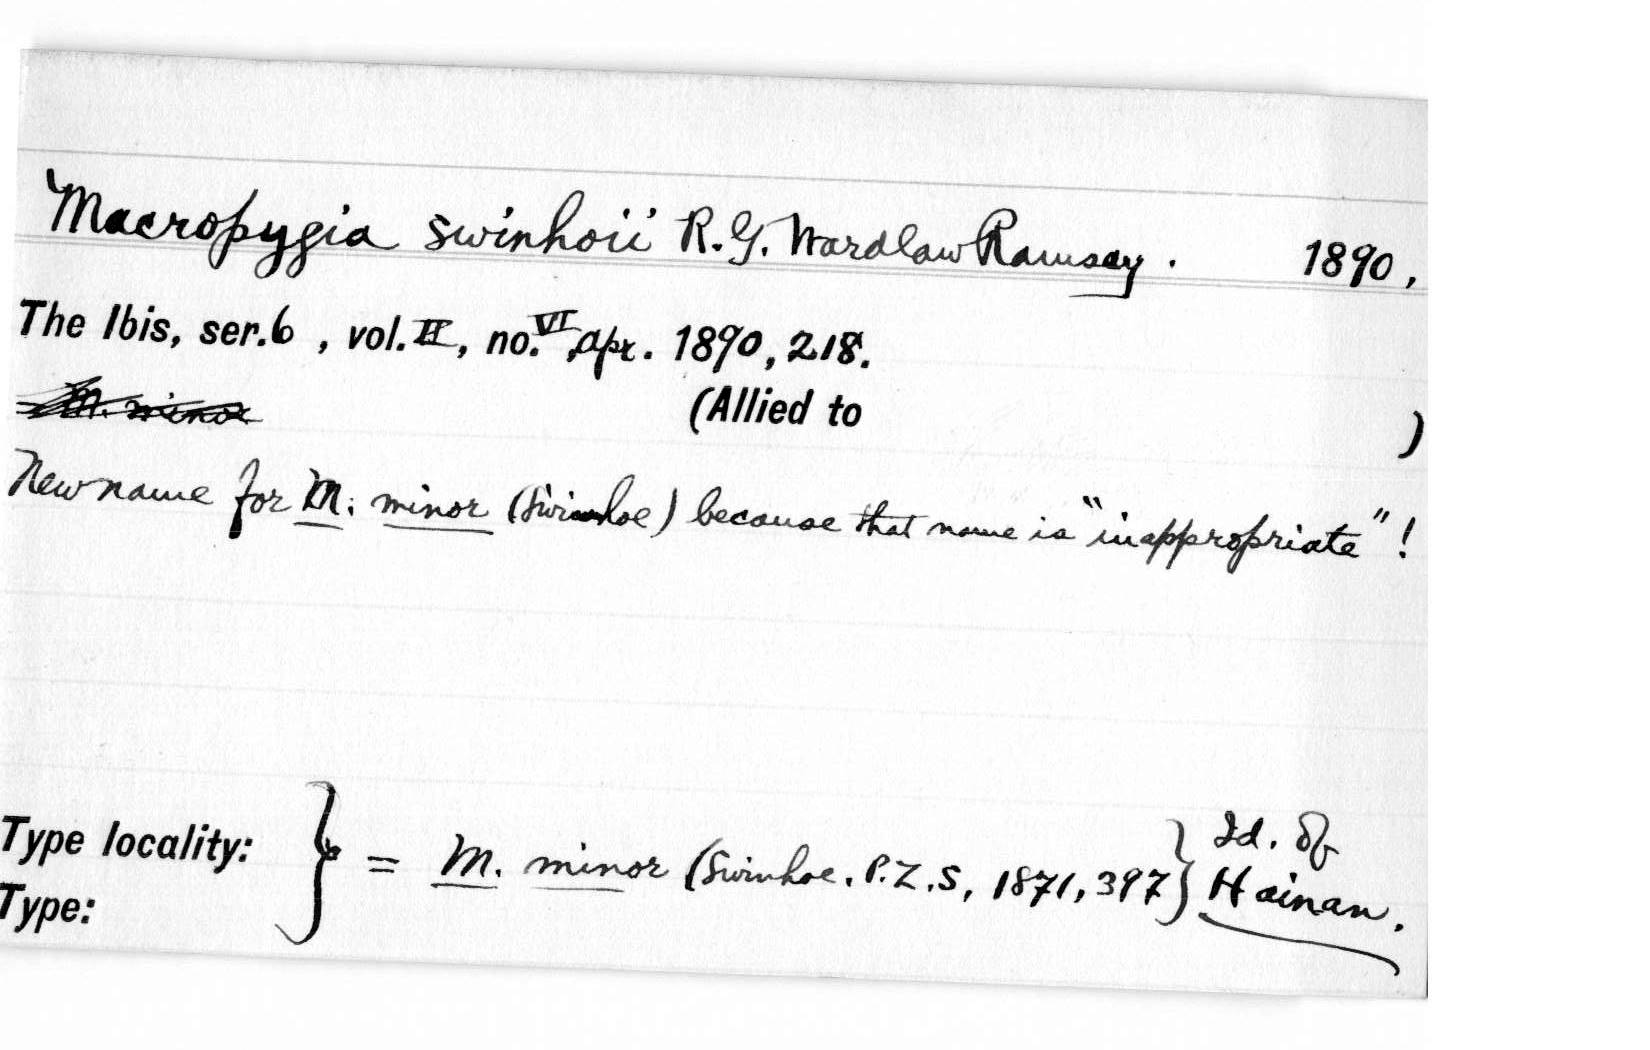 Macropygia swinhoii R. G. Wardlaw Ramsay. 1890,
The Ibis, ser. 6, vol. II, no. VI, Apr. 1890, 218.
M. minor (Allied to )
New name for M. minor (Swinhoe) because that name is "inappropriate"!
Id. of
Type locality: } = M. minor (Swinhoe. P.Z.S, 1871, 397} Hainan.
Type: